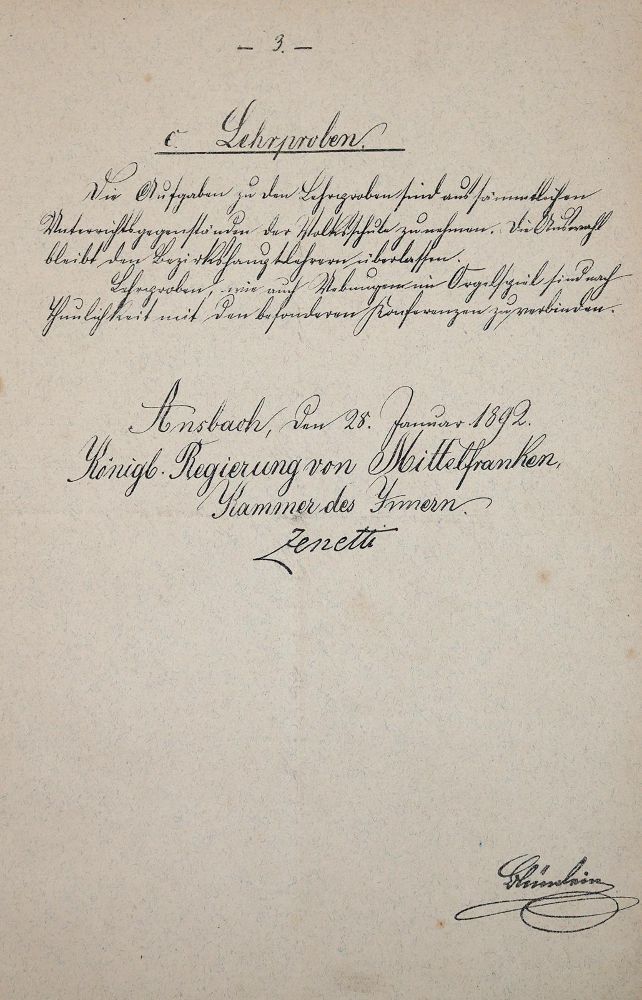 — 3. —
c. Lehrproben.
Die Aufgaben zu den Lehrproben sind aus sämmtlichen
Unterrichtsgegenständen der Volksschule zu nehmen. Die Auswahl
bleibt den Bezirkshauptlehrern überlassen.
Lehrproben, wie auch Uebungen im Orgelspiel sind nach
Thunlichkeit mit den besonderen Konferenzen zu verbinden.
Ansbach, den 28. Januar 1892.
Königl. Regierung von Mittelfranken,
Kammer des Innern.
Zenetti